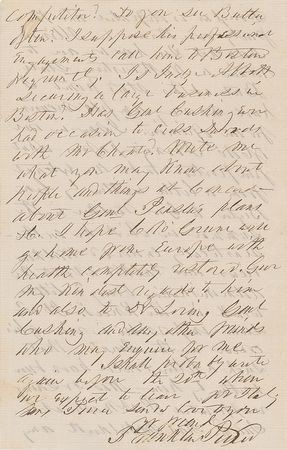 competitor? Do you see Butler
often. I suppose his professional
engagements call him to Boston
frequently, Is Judge Abbott
securing a large business in
Boston. Has Genl Cushing ever
had occasion to cross swords
with Mr Choate. Write me
what you may know about
people and things at Concord
about Genl Peaslee's plans
&c. I hope Col. Greene will
go home from Europe with
health completely restored. Give
my kindest regards to him
and also to Dr Loring Genl
Cushing and any other friends
who may enquire for me
I shall probably write
again before the 20th when
we expect to leave for Italy
Mrs Pierce sends love to you
Yr friend
Franklin Pierce